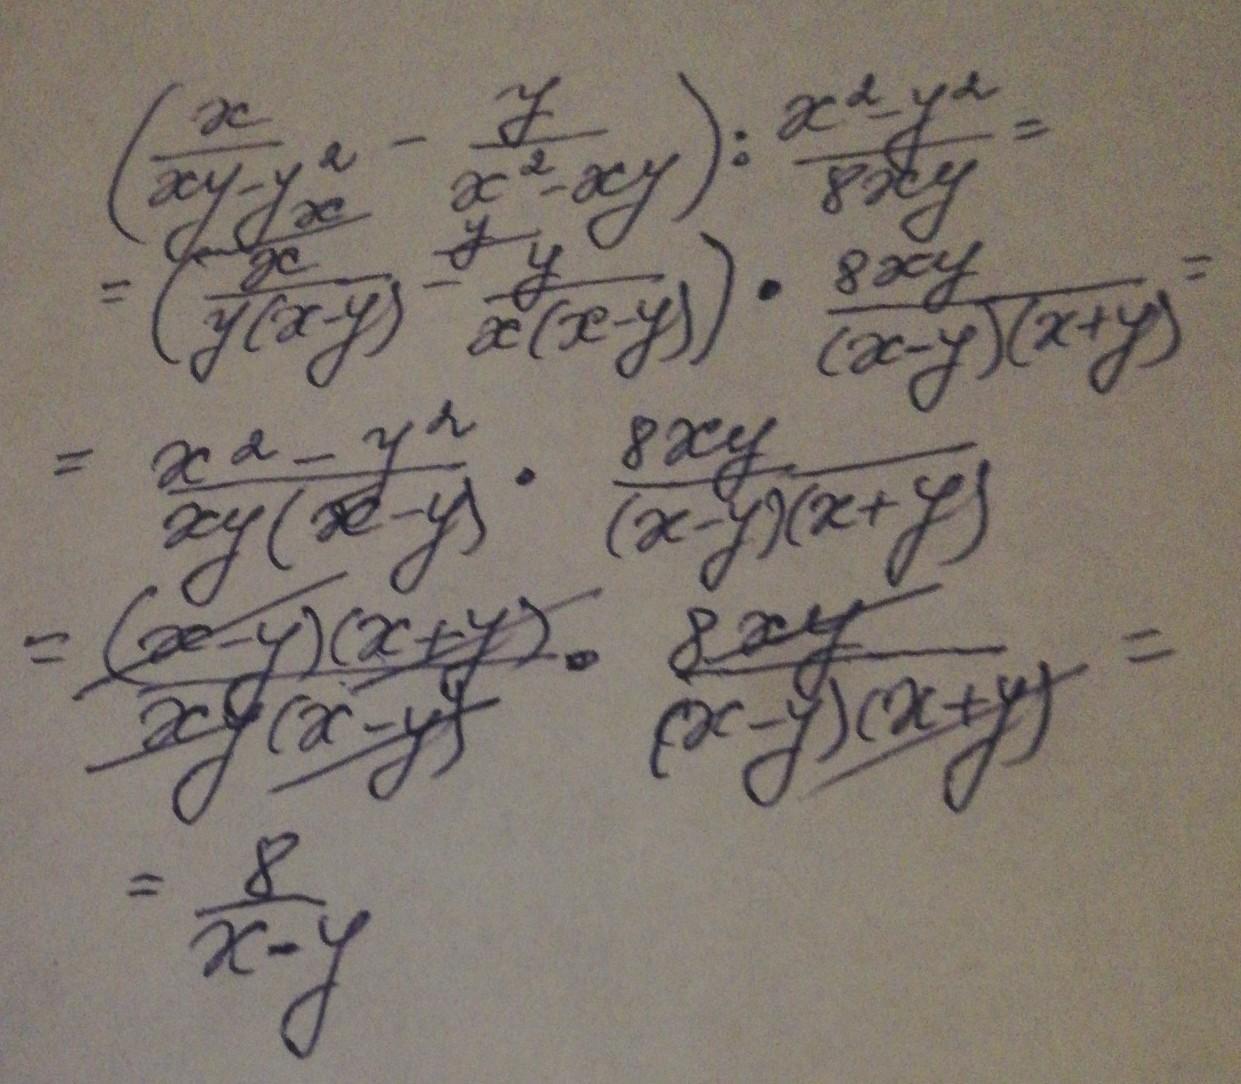 (x/(xy-y²) - y/(x²-xy)) : (x²-y²)/(8xy) =
= (x/(y(x-y)) - y/(x(x-y))) · 8xy/((x-y)(x+y)) =
= (x²-y²)/(xy(x-y)) · 8xy/((x-y)(x+y))
= ((x-y)(x+y))/(xy(x-y)) · 8xy/((x-y)(x+y)) =
= 8/(x-y)